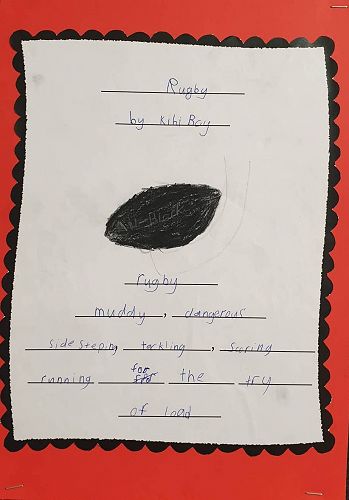 Rugby
by Kihi Roy
All Black
rugby
muddy, dangerous
side steping, tackling, scoring
running for the try
of load